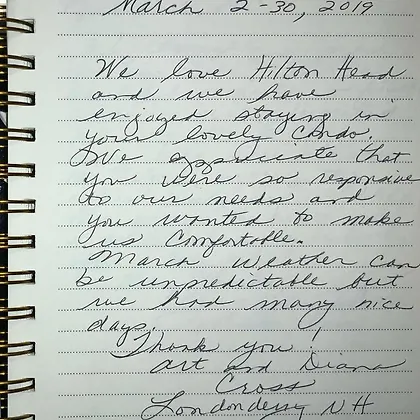 March 2-30, 2019
We love Hilton Head
and we have
enjoyed staying in
your lovely condo.
We appreciate that
you were so responsive
to our needs and
you wanted to make
us comfortable.
March weather can
be unpredictable but
we had many nice
days.
Thank you!
Art and Diana
Cross
Londonderry NH